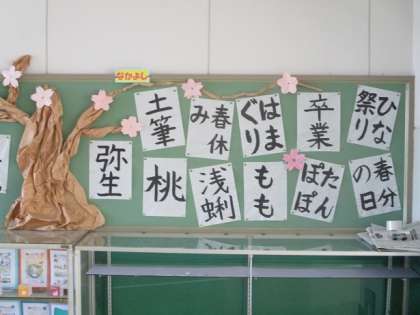 なかよし
ひな
祭り
卒業
はま
ぐり
春休
み
土筆
春分
の日
たん
ぽぽ
もも
浅蜊
桃
弥生